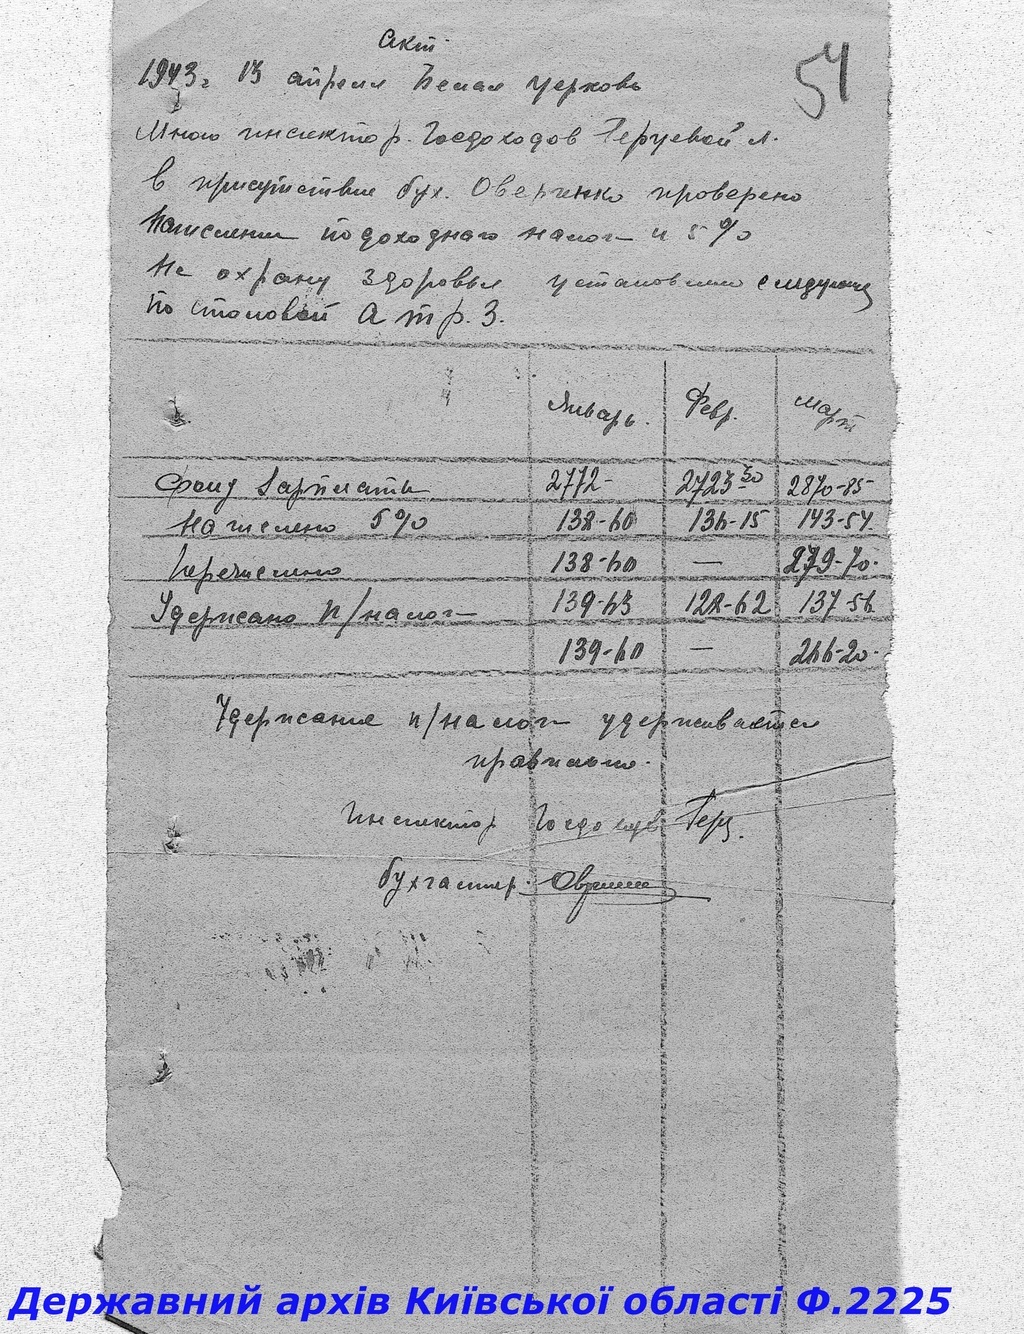 Акт
54
1943 г 13 апреля Белая Церковь
Мною инспектор. Госдоходов Л.
в присутствие бух. Оверченко проверено
Начисления подоходнаго налог и 5%
на охрану здоровья установлено следующ
по столовой А т р. 3.
Январь. Февр. Март
Фонд Зарплаты 2772- 2723 30 2870-85
Начислено 5% 138-60 136-15 143-54
Перечислено 138-60 — 279-70-
Удержано п/налог 139-63 128-62 137-56
139-60 — 266-20-
Удержание п/налог удерживается
правильно.
Инспектор Госдоходов Герц.
бухгалтер.
Державний архів Київської області Ф.2225